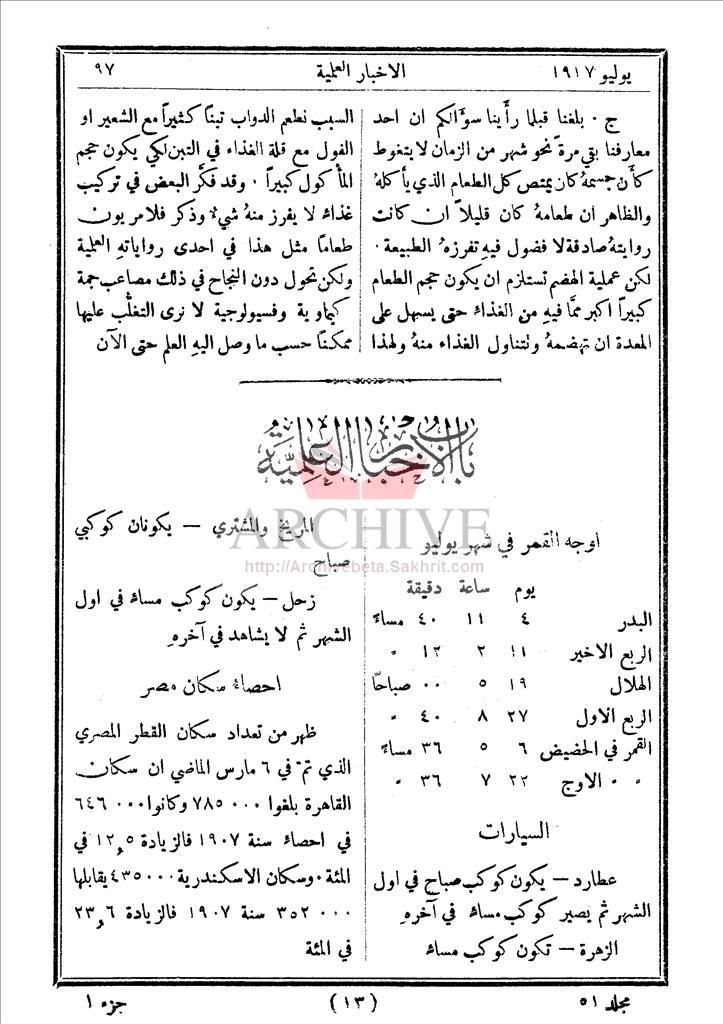 يوليو ١٩١٧ الاخبار العلمية ٩٧
ج ٠ بلغنا قبلما رأينا سؤالكم ان احد
معارفنا بقي مرة نحو شهر من الزمان لا يتغوط
كأن جسمهُ كان يمتص كل الطعام الذي يأكلهُ
والظاهر ان طعامهُ كان قليلاً ان كانت
روايتهُ صادقة لا فضول فيهِ تفرزهُ الطبيعة ٠
لكن عملية الهضم تستلزم ان يكون حجم الطعام
كبيراً اكبر ممَّا فيهِ من الغذاء حتى يسهل على
المعدة ان تهضمهُ ونتناول الغذاء منهُ ولهذا
السبب نطعم الدواب تبناً كثيراً مع الشعير او
الفول مع قلة الغذاء في التبن لكي يكون حجم
المأكول كبيراً ٠ وقد فكَّر البعض في تركيب
غذاء لا يفرز منهُ شيء وذكر فلامريون
طعاماً مثل هذا في احدى رواياتهِ العلمية
ولكن تحول دون النجاح في ذلك مصاعب جمة
كيماوية وفسيولوجية لا نرى التغلُّب عليها
ممكناً حسب ما وصل اليهِ العلم حتى الآن
باب الاخبار العلمية
اوجه القمر في شهر يوليو
يوم ساعة دقيقة
البدر ٤ ١١ ٤٠ مساءً
الربع الاخير ١١ ٢ ١٢ "
الهلال ١٩ ٥ ٠٠ صباحًا
الربع الاول ٢٧ ٨ ٤٠ "
القمر في الحضيض ٦ ٥ ٣٦ مساءً
" " الاوج ٢٢ ٧ ٣٦ "
السيارات
عطارد — يكون كوكب صباح في اول
الشهر ثم يصير كوكب مساء في آخرهِ
الزهرة — تكون كوكب مساء
المريخ والمشتري — يكونان كوكبي
صباح
زحل — يكون كوكب مساء في اول
الشهر ثم لا يشاهد في آخرهِ
احصاء سكان مصر
ظهر من تعداد سكان القطر المصري
الذي تمّ في ٦ مارس الماضي ان سكان
القاهرة بلغوا ٧٨٥٠٠٠ وكانوا ٦٤٦٠٠٠
في احصاء سنة ١٩٠٧ فالزيادة ١٢٫٥ في
المئة ٠ وسكان الاسكندرية ٤٣٥٠٠٠ يقابلها
٣٥٢٠٠٠ سنة ١٩٠٧ فالزيادة ٢٣٫٦
في المئة
ARCHIVE
http://Archivebeta.Sakhrit.com
مجلد ٥١ (١٣) جزء ١